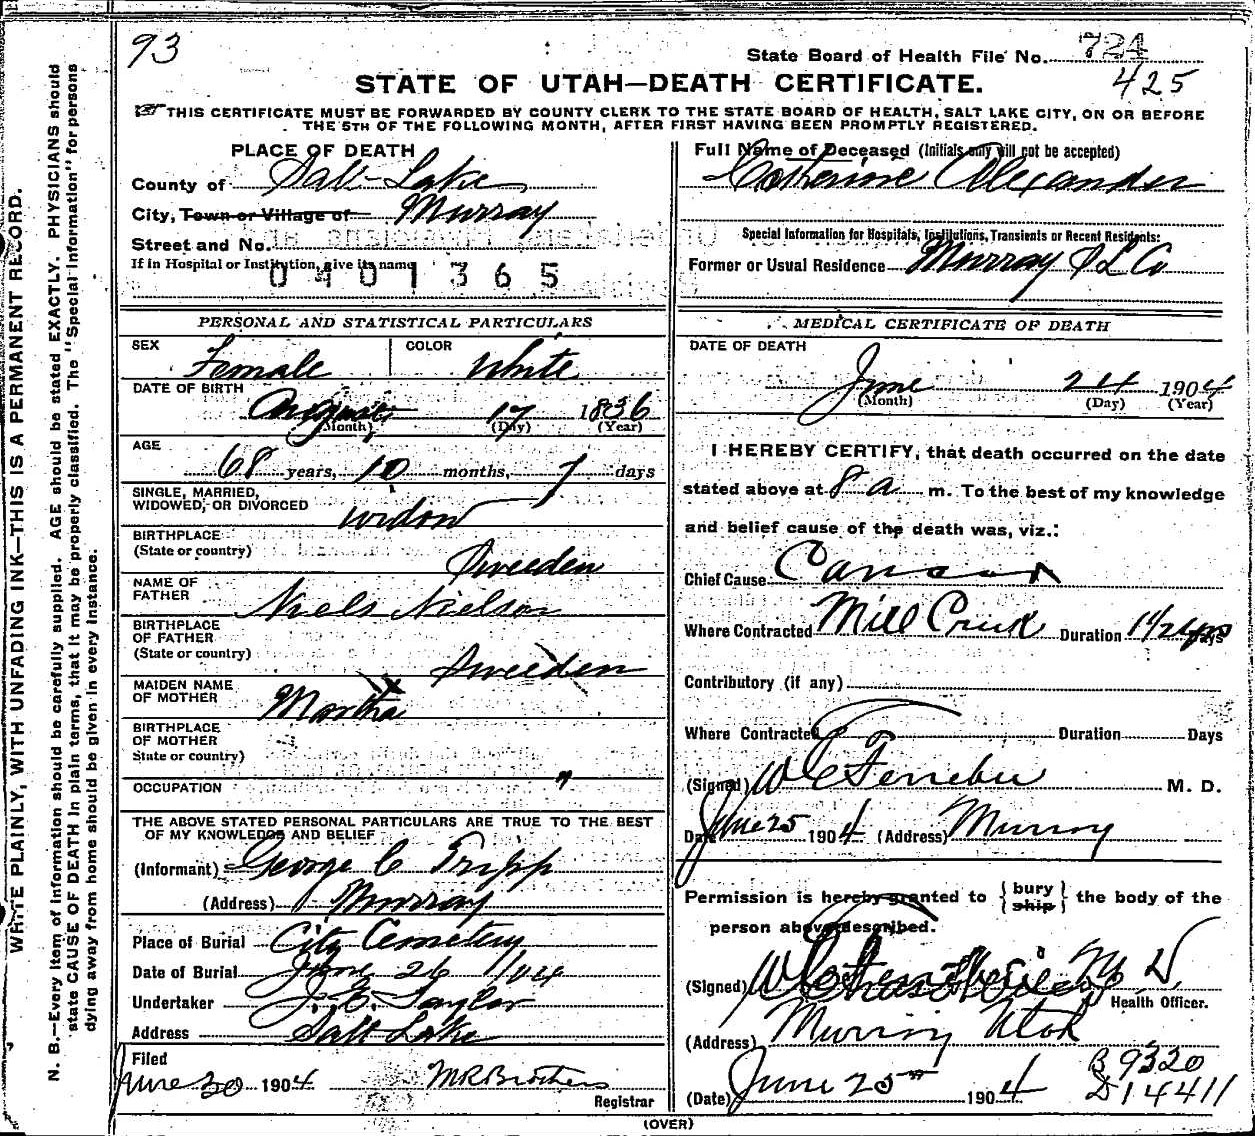 93
State Board of Health File No. 724
425
STATE OF UTAH—DEATH CERTIFICATE.
THIS CERTIFICATE MUST BE FORWARDED BY COUNTY CLERK TO THE STATE BOARD OF HEALTH, SALT LAKE CITY, ON OR BEFORE
THE 5TH OF THE FOLLOWING MONTH, AFTER FIRST HAVING BEEN PROMPTLY REGISTERED.
WRITE PLAINLY, WITH UNFADING INK—THIS IS A PERMANENT RECORD.
N. B.—Every item of information should be carefully supplied. AGE should be stated EXACTLY. PHYSICIANS should
state CAUSE OF DEATH in plain terms, that it may be properly classified. The "Special Information" for persons
dying away from home should be given in every instance.
PLACE OF DEATH
County of Salt Lake
City, Town or Village of Murray
Street and No.
If in Hospital or Institution, give its name
0401365
PERSONAL AND STATISTICAL PARTICULARS
SEX Female COLOR White
DATE OF BIRTH August 17 1836
(Month) (Day) (Year)
AGE
68 years, 10 months, 7 days
SINGLE, MARRIED,
WIDOWED, OR DIVORCED widow
BIRTHPLACE
(State or country) Sweeden
NAME OF
FATHER Niels Nielson
BIRTHPLACE
OF FATHER
(State or country) Sweeden
MAIDEN NAME
OF MOTHER Martha
BIRTHPLACE
OF MOTHER
State or country)
OCCUPATION "
THE ABOVE STATED PERSONAL PARTICULARS ARE TRUE TO THE BEST
OF MY KNOWLEDGE AND BELIEF
(Informant) George C Tripp
(Address) Murray
Place of Burial City Cemetery
Date of Burial June 26 1904
Undertaker J. E. Taylor
Address Salt Lake
Filed
June 30 1904 M R Brothers
Registrar
Full Name of Deceased (Initials only will not be accepted)
Catherine Alexander
Special Information for Hospitals, Institutions, Transients or Recent Residents:
Former or Usual Residence Murray S L Co
MEDICAL CERTIFICATE OF DEATH
DATE OF DEATH
June 24 1904
(Month) (Day) (Year)
I HEREBY CERTIFY, that death occurred on the date
stated above at 8 a m. To the best of my knowledge
and belief cause of the death was, viz.:
Chief Cause Cancer
Where Contracted Mill Creek Duration 1 1/2 yrs Days
Contributory (if any)
Where Contracted Duration Days
(Signed) W C Ferrebee M. D.
Date June 25 1904 (Address) Murray
Permission is hereby granted to { bury ship } the body of the
person above described.
(Signed) M D
Health Officer.
(Address) Murray Utah
(Date) June 25th 1904
B 9320
D 14411
(OVER)